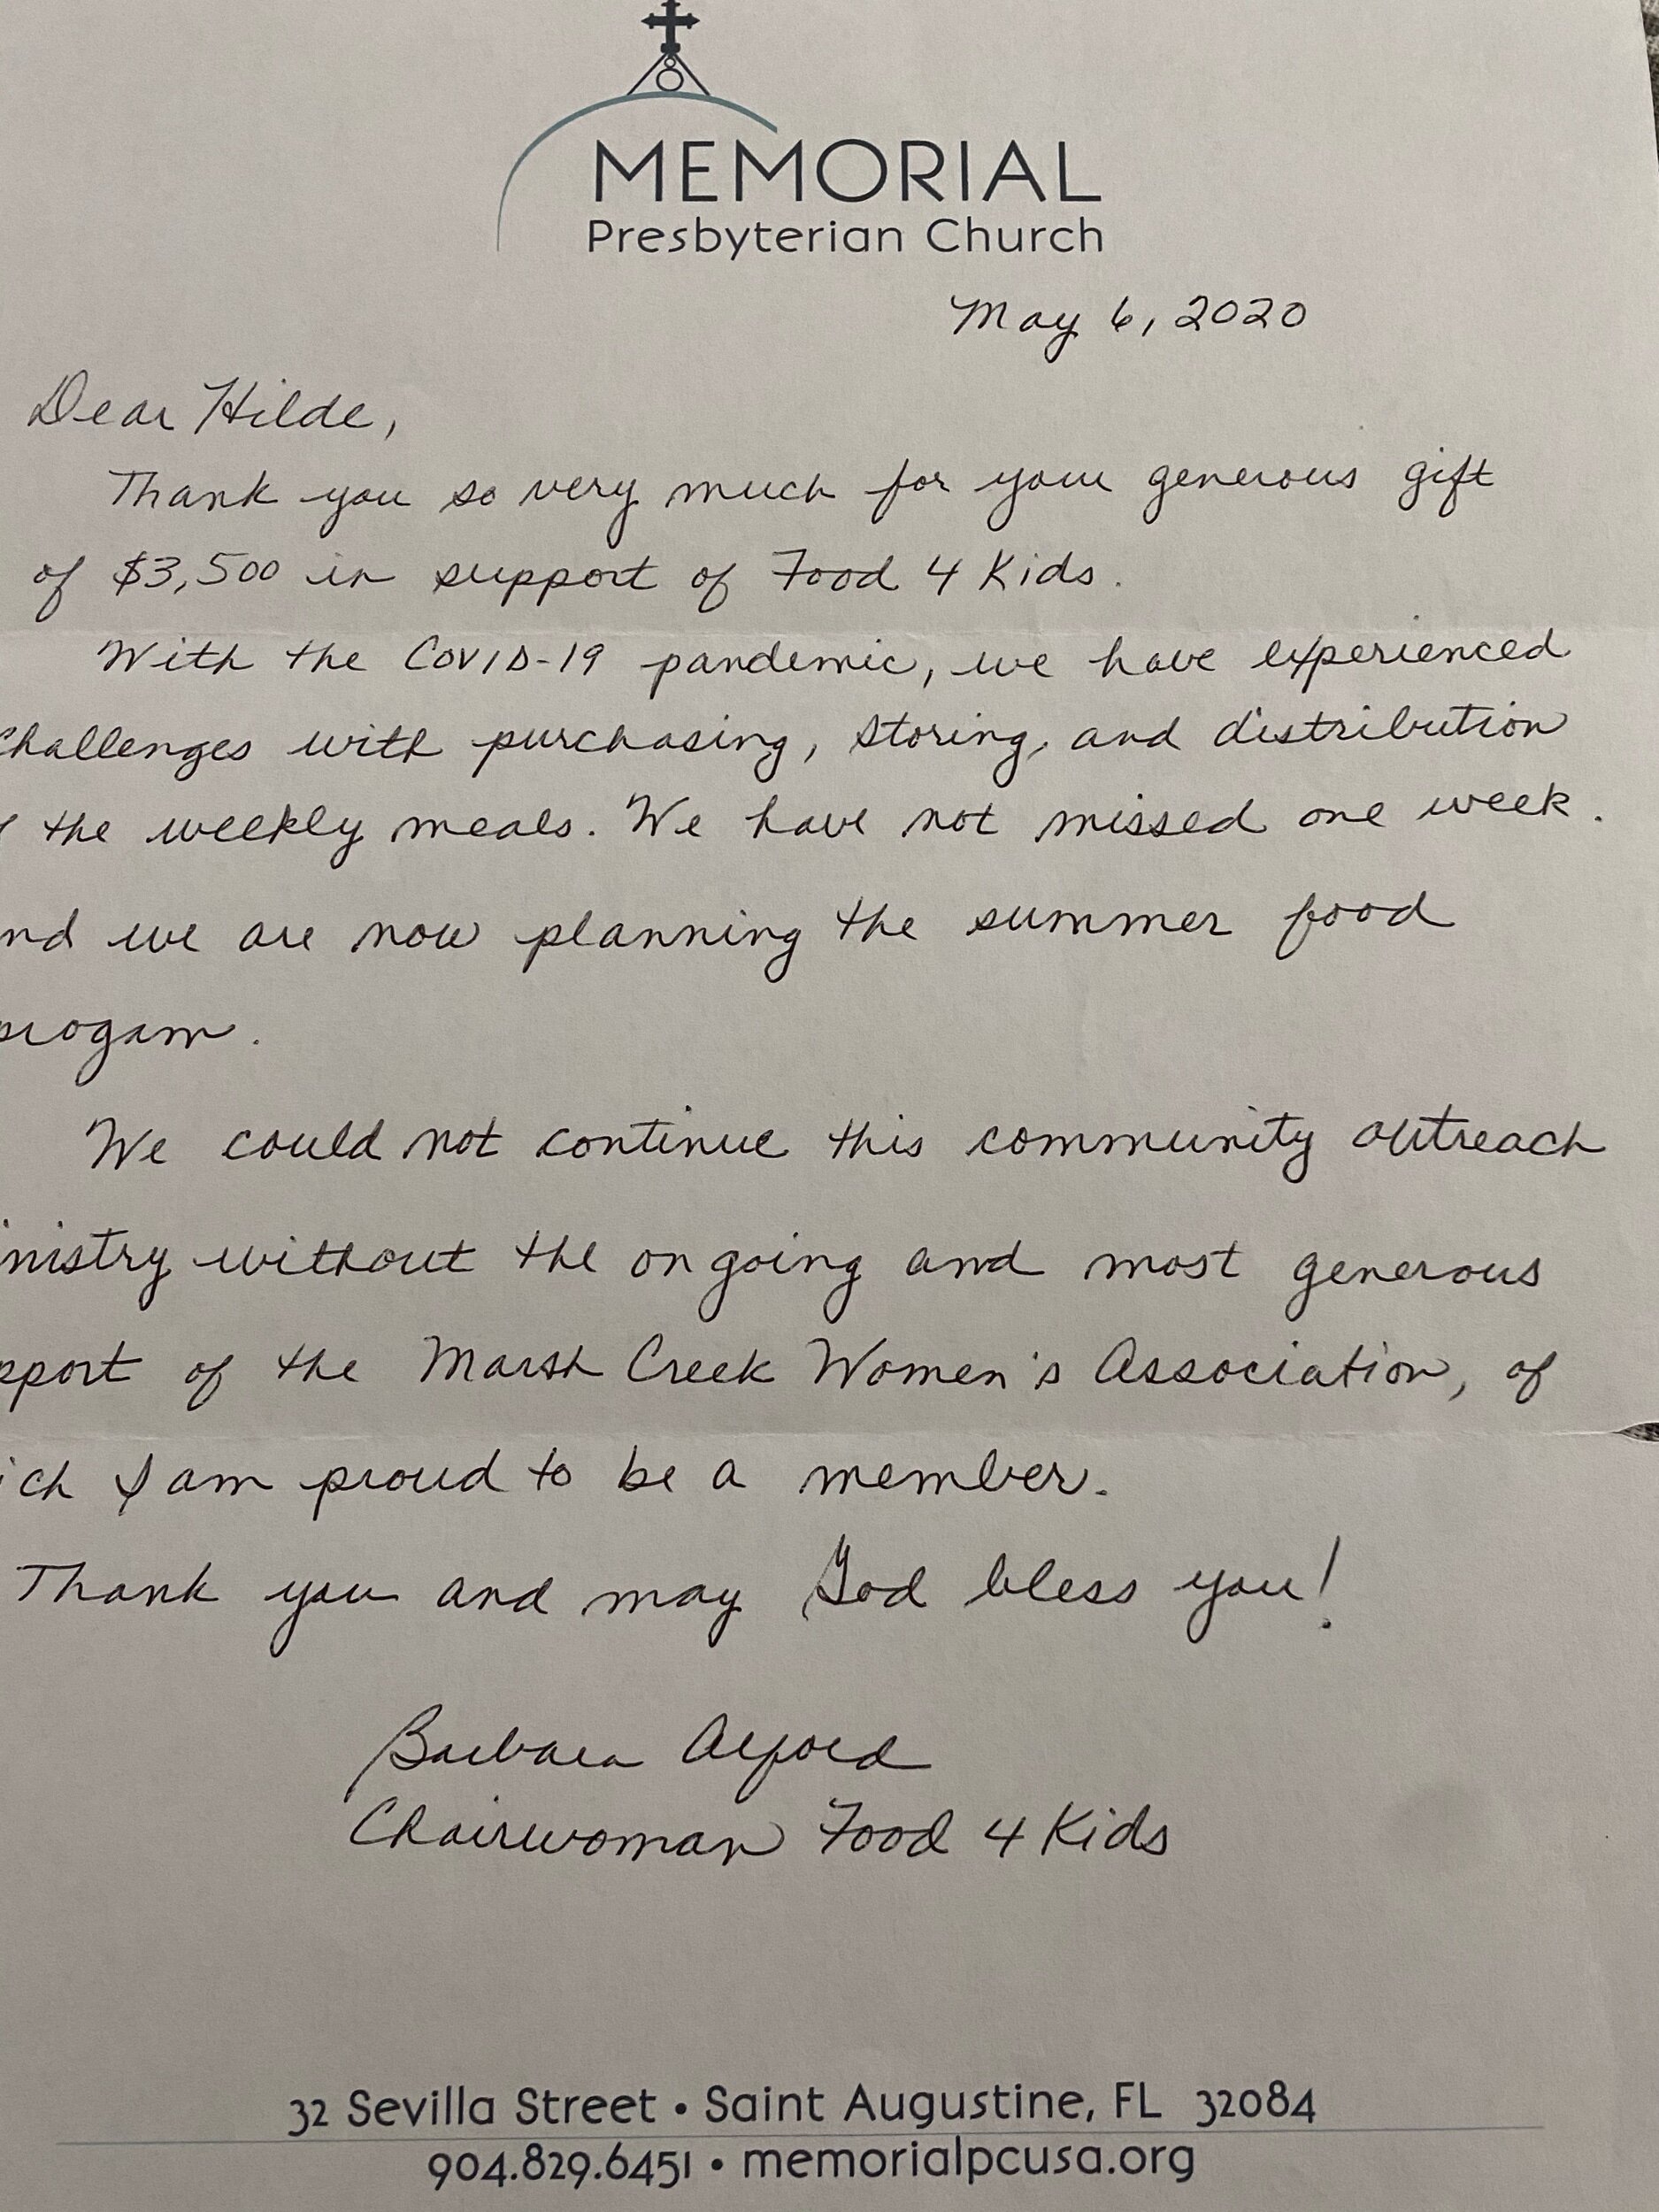 MEMORIAL
Presbyterian Church
May 6, 2020
Dear Hilde,
Thank you so very much for your generous gift
of $3,500 in support of Food 4 Kids.
With the COVID-19 pandemic, we have experienced
challenges with purchasing, storing, and distribution
the weekly meals. We have not missed one week.
nd we are now planning the summer food
progam.
We could not continue this community outreach
inistry without the ongoing and most generous
pport of the Marsh Creek Women's Association, of
ich I am proud to be a member.
Thank you and may God bless you!
Barbara Alford
Chairwoman Food 4 Kids
32 Sevilla Street • Saint Augustine, FL 32084
904.829.6451 • memorialpcusa.org